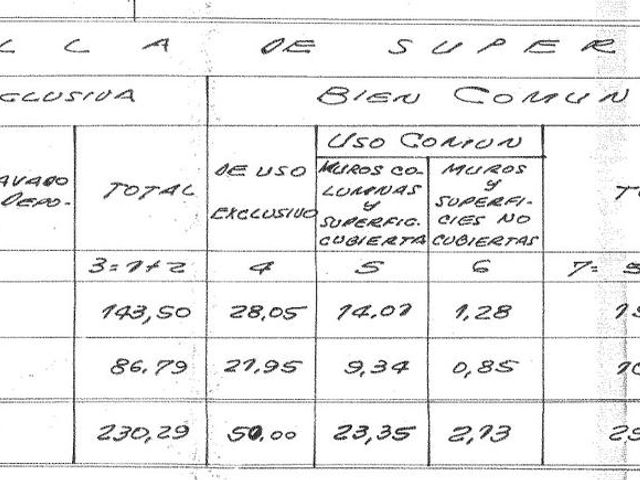 L L A DE SUPER
CLUSIVA BIEN COMUN
USO COMUN
AVADO DEPO- TOTAL DE USO EXCLUSIVO MUROS CO- MUROS
LUMNAS Y
Y SUPERFI-
SUPERFIC. CIES NO
CUBIERTA CUBIERTAS
3=1+2 4 5 6 7=
143,50 28,05 14,01 1,28
86,79 21,95 9,34 0,85
230,29 50,00 23,35 2,13